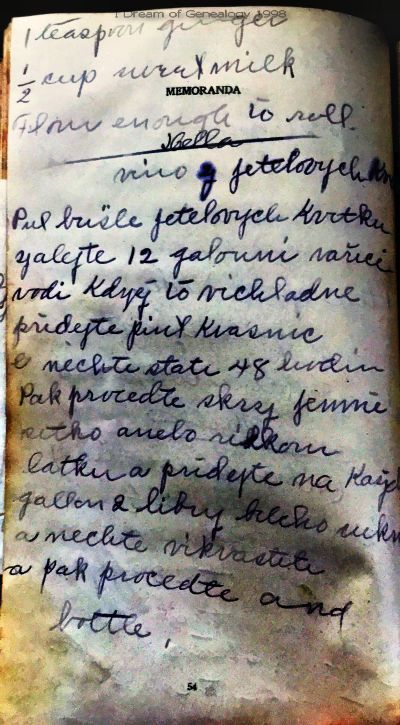 I Dream of Genealogy 1998
1 teaspoon ginger
½ cup sweet milk
MEMORANDA
Flour enough to roll.
Bella
vino z jetelovych
Pul bušle jetelovych Kvetku
zalejte 12 galounu vařici
vodi Kdyej to vichladne
pridejte pint Kvasnic
e nechte stati 48 hodin
Pak procedte skrz jemne
sitko anebo ridkou
latku a pridejte na Každ
gallon 2 libry bileho cukr
a nechte vikvasiti
a pak procedte and
bottle,
54